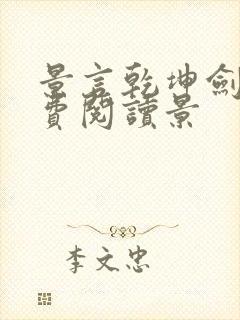 景言乾坤劍
費閱讀景
李文忠